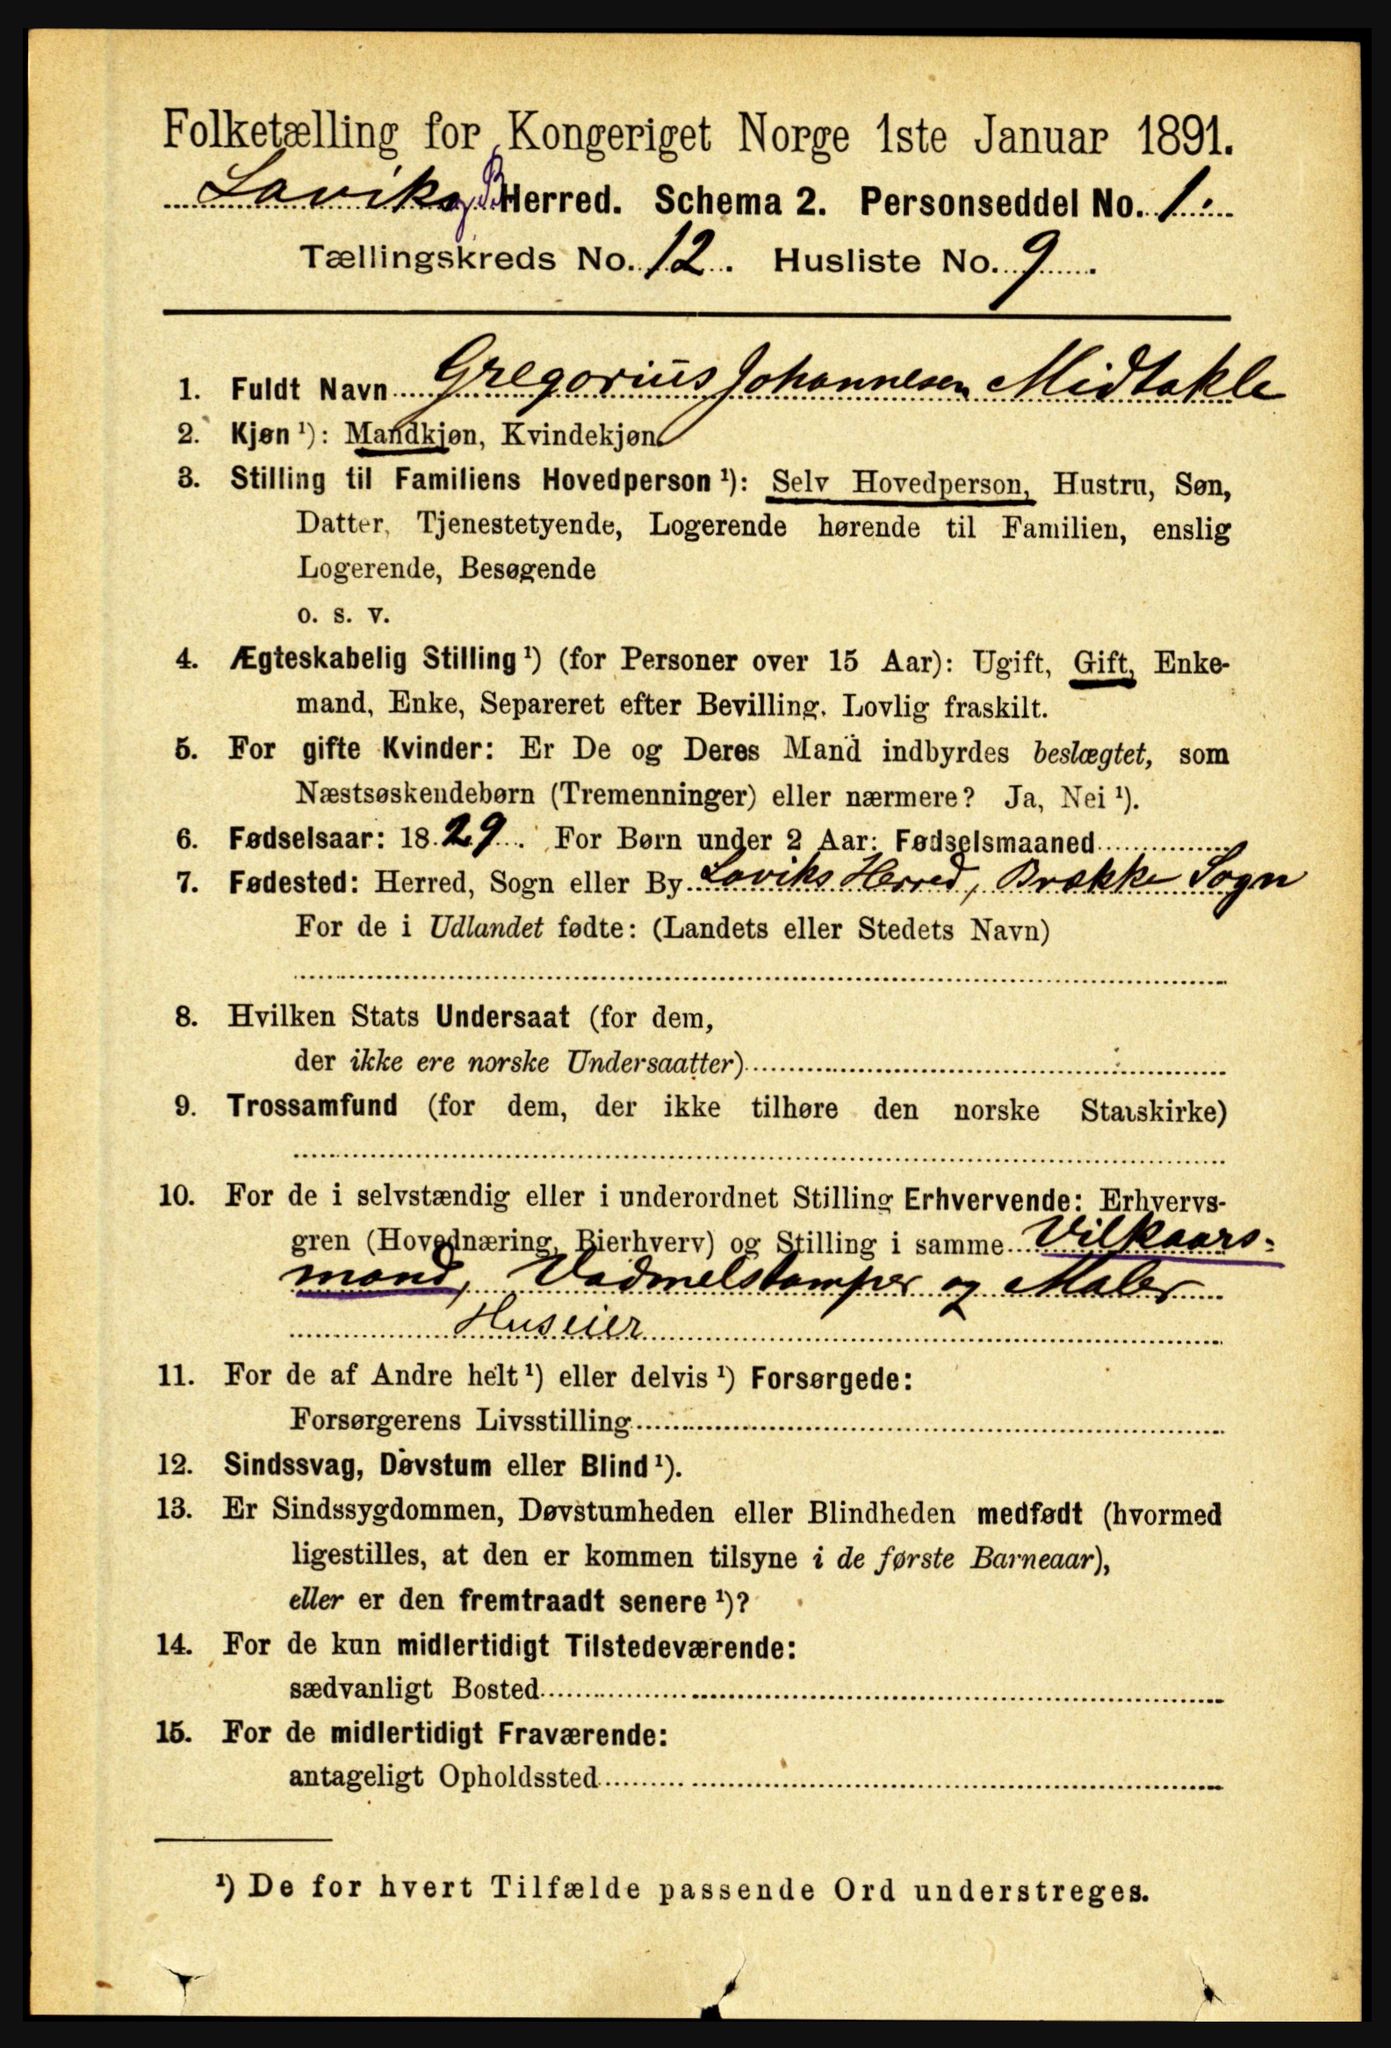 Folketælling for Kongeriget Norge 1ste Januar 1891.
Laviks og B. Herred. Schema 2. Personseddel No. 1.
Tællingskreds No. 12. Husliste No. 9.
1. Fuldt Navn Gregorius Johannesen Midtakle
2. Kjøn ¹): Mandkjøn, Kvindekjøn.
3. Stilling til Familiens Hovedperson ¹): Selv Hovedperson, Hustru, Søn,
Datter, Tjenestetyende, Logerende hørende til Familien, enslig
Logerende, Besøgende
o. s. v.
4. Ægteskabelig Stilling ¹) (for Personer over 15 Aar): Ugift, Gift, Enke-
mand, Enke, Separeret efter Bevilling. Lovlig fraskilt.
5. For gifte Kvinder: Er De og Deres Mand indbyrdes beslægtet, som
Næstsøskendebørn (Tremenninger) eller nærmere? Ja, Nei ¹).
6. Fødselsaar: 1829. For Børn under 2 Aar: Fødselsmaaned
7. Fødested: Herred, Sogn eller By Laviks Herred, Brække Sogn
For de i Udlandet fødte: (Landets eller Stedets Navn)
8. Hvilken Stats Undersaat (for dem,
der ikke ere norske Undersaatter)
9. Trossamfund (for dem, der ikke tilhøre den norske Statskirke)
10. For de i selvstændig eller i underordnet Stilling Erhvervende: Erhvervs-
gren (Hovednæring, Bierhverv) og Stilling i samme Vilkaars-
mand, Vadmelstamper og Maler
Huseier
11. For de af Andre helt ¹) eller delvis ¹) Forsørgede:
Forsørgerens Livsstilling
12. Sindssvag, Døvstum eller Blind ¹).
13. Er Sindssygdommen, Døvstumheden eller Blindheden medfødt (hvormed
ligestilles, at den er kommen tilsyne i de første Barneaar),
eller er den fremtraadt senere ¹)?
14. For de kun midlertidigt Tilstedeværende:
sædvanligt Bosted
15. For de midlertidigt Fraværende:
antageligt Opholdssted
¹) De for hvert Tilfælde passende Ord understreges.